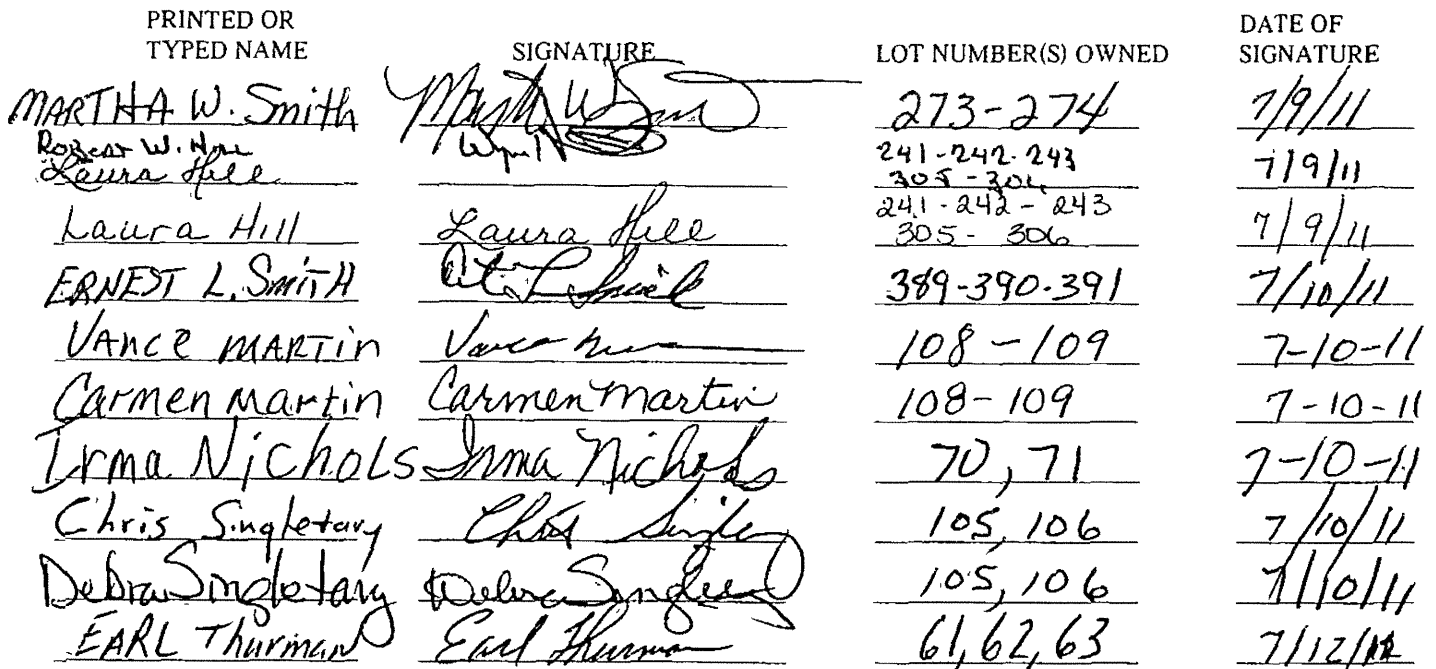 PRINTED OR
TYPED NAME SIGNATURE LOT NUMBER(S) OWNED DATE OF
SIGNATURE
MARTHA W. Smith 273-274 7/9/11
Robert W. Hill 241-242-243
Laura Hill 305-306 7/9/11
Laura Hill Laura Hill 241-242-243
305-306 7/9/11
ERNEST L. SmiTH 389-390-391 7/10/11
VANCE MARTin Vance 108-109 7-10-11
Carmen Martin Carmen Martin 108-109 7-10-11
Irma NichoLs Irma Nichols 70, 71 7-10-11
Chris Singletary Chris 105, 106 7/10/11
Debra Singletary Debra 105, 106 7/10/11
EARL Thurman Earl Thurman 61, 62, 63